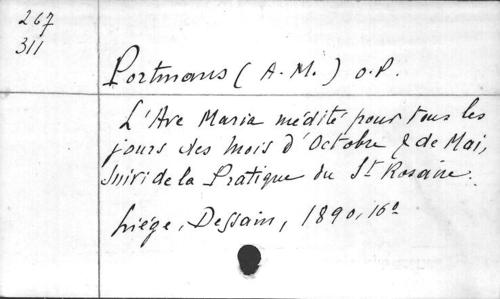 267
311
Portmans (A.-M.) O.P.
L'Ave Maria médité pour tous les
jours des mois d'Octobre & de Mai,
suivi de la Pratique du St Rosaire.
Liége, Dessain, 1890, 16°